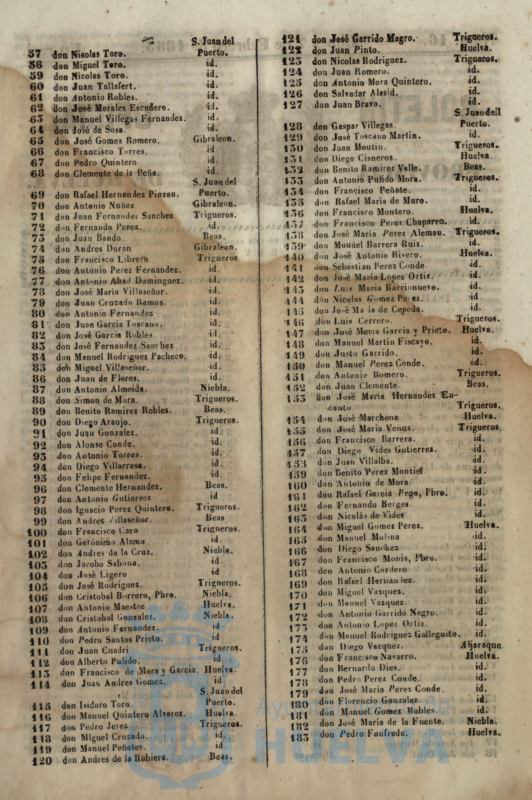 S. Juan del
57 don Nicolas Toro. Puerto.
58 don Miguel Toro. id.
59 don Nicolas Toro. id.
60 don Juan Tallafert. id.
61 don Antonio Robles. id.
62 don José Morales Escudero. id.
63 don Manuel Villegas Fernandez. id.
64 don José de Sosa. id.
65 don José Gomez Romero. Gibraleon.
66 don Francisco Torres. id.
67 don Pedro Quintero id.
68 don Clemente de la Peña. id.
S. Juan del
69 don Rafael Hernandez Pinzon. Puerto.
70 don Antonio Nuñez Gibraleon.
71 don Juan Fernandez Sanchez Trigueros.
72 don Fernando Perez. id.
73 don Juan Bando. Beas.
74 don Andres Duran Gibraleon.
75 don Francisco Librero Trigueros
76 don Antonio Perez Fernandez. id.
77 don Antonio Abad Dominguez. id.
78 don José Maria Villaseñor. id.
79 don Juan Cruzado Ramos. id.
80 don Antonio Fernandez id.
81 don Juan Garcia Toscano. id.
82 don José Garcia Robles id.
83 don José Fernandez Sanchez id.
84 don Manuel Rodriguez Pacheco. id.
85 don Miguel Villaseñor. id.
86 don Juan de Flores. id.
87 don Antonio Almeida. Niebla.
88 don Simon de Mora. Trigueros.
89 don Benito Ramirez Robles. Beas.
90 don Diego Araujo. Trigueros.
91 don Juan Gonzalez. id.
92 don Alonso Conde. id.
93 don Antonio Torres. id.
94 don Diego Villarrasa. id.
95 don Felipe Fernandez. id.
96 don Clemente Hernandez. Beas.
97 don Antonio Gutierrez id
98 don Ignacio Perez Quintero. Trigueros.
99 don Andres Villaseñor. Beas
100 don Francisco Caro Trigueros.
101 don Gerónimo Alamo id.
102 don Andres de la Cruz. Niebla.
103 don Jacobo Sabona. id.
104 don José Ligero id
105 don José Rodriguez. Trigueros.
106 don Cristobal Borrero, Pbro. Niebla.
107 don Antonio Maestre Huelva.
108 don Cristobal Gonzalez. Niebla.
109 don Antonio Fernandez. id
110 don Pedro Santos Prieto. id
111 don Juan Cuadri Trigueros.
112 don Alberto Pulido. id.
113 don Francisco de Mora y Garcia. Huelva.
114 don Juan Andres Gomez. id
S. Juan del
115 don Isidoro Toro Puerto.
116 don Manuel Quintero Alvarez. Huelva.
117 don Pedro Jerez Trigueros.
118 don Miguel Cruzado. id.
119 don Manuel Peñates. id.
120 don Andres de la Rubiera. Beas.
121 don José Garrido Magro. Trigueros.
122 don Juan Pinto. Huelva.
123 don Nicolas Rodriguez. Trigueros.
124 don Juan Romero. id.
125 don Antonio Mora Quintero. id.
126 don Salvadar Alasid. id.
127 don Juan Bravo. id.
S. Juandell
128 don Gaspar Villegas. Puerto.
129 don José Toscano Martin. id.
130 don Juan Moutin. Trigueros.
131 don Diego Cisneros. Huelva.
132 don Benito Ramirez Valle. Beas.
133 don Antonio Pulido Mora. Trigueros.
134 don Francisco Peñate. id.
135 don Rafael Maria de Muro. id.
136 don Francisco Montero. Huelva.
137 don Francisco Perez Chaparro. id.
138 don José Maria Perez Alemou. Trigueros.
139 don Manuel Barrera Ruiz. id.
140 don José Antonio Rivero. Huelva.
141 don Sebastian Perez Conde id.
142 don José Maria Lopez Ortiz. id.
143 don Luis Maria Barrionuevo id.
144 don Nicolas Gomez Perez. id.
145 don José Maria de Cepeda. id.
146 don Luis Cerrero. Trigueros.
147 don José Maria Garcia y Prieto. Huelva.
148 don Manuel Martin Fiscayo. id.
149 don Justo Garrido. id.
150 don Manuel Perez Conde. id.
151 don Antonio Romero. Trigueros.
152 don Juan Clemente Beas.
153 don José Maria Hernandez En-
canto Trigueros.
154 don José Marchena Huelva.
155 don José Maria Venus. Trigueros
156 don Francisco Barrera. id.
157 don Diego Vides Gutierrez. id.
158 don Juan Villalba. id.
159 don Benito Perez Montiel id.
160 don Antonio de Mora id.
161 don Rafael Garcia Pego, Pbro. id.
162 don Fernando Berges id.
163 don Nicolás de Vides id.
164 don Miguel Gomez Perez. Huelva.
165 don Manuel Molina id.
166 don Diego Sanchez id.
167 don Francisco Monis, Pbro. id.
168 don Antonio Cordero id.
169 don Rafael Hernandez. id.
170 don Miguel Vazques. id.
171 don Manuel Vazquez. id.
172 don Antonio Garrido Negro. id.
173 don Antonio Lopez Ortiz. id.
174 don Manuel Rodriguez Galleguito. id.
175 don Diego Vazquez. Aljaraque
176 don Francisco Navarro. Huelva.
177 don Bernardo Dies. id.
178 don Pedro Perez Conde. id.
179 don José Maria Perez Conde. id.
180 don Florencio Gonzalez id.
181 don Manuel Gomez Robles. id.
182 don José Maria de la Fuente. Niebla.
183 don Pedro Foufredo. Huelva.
HUELVA